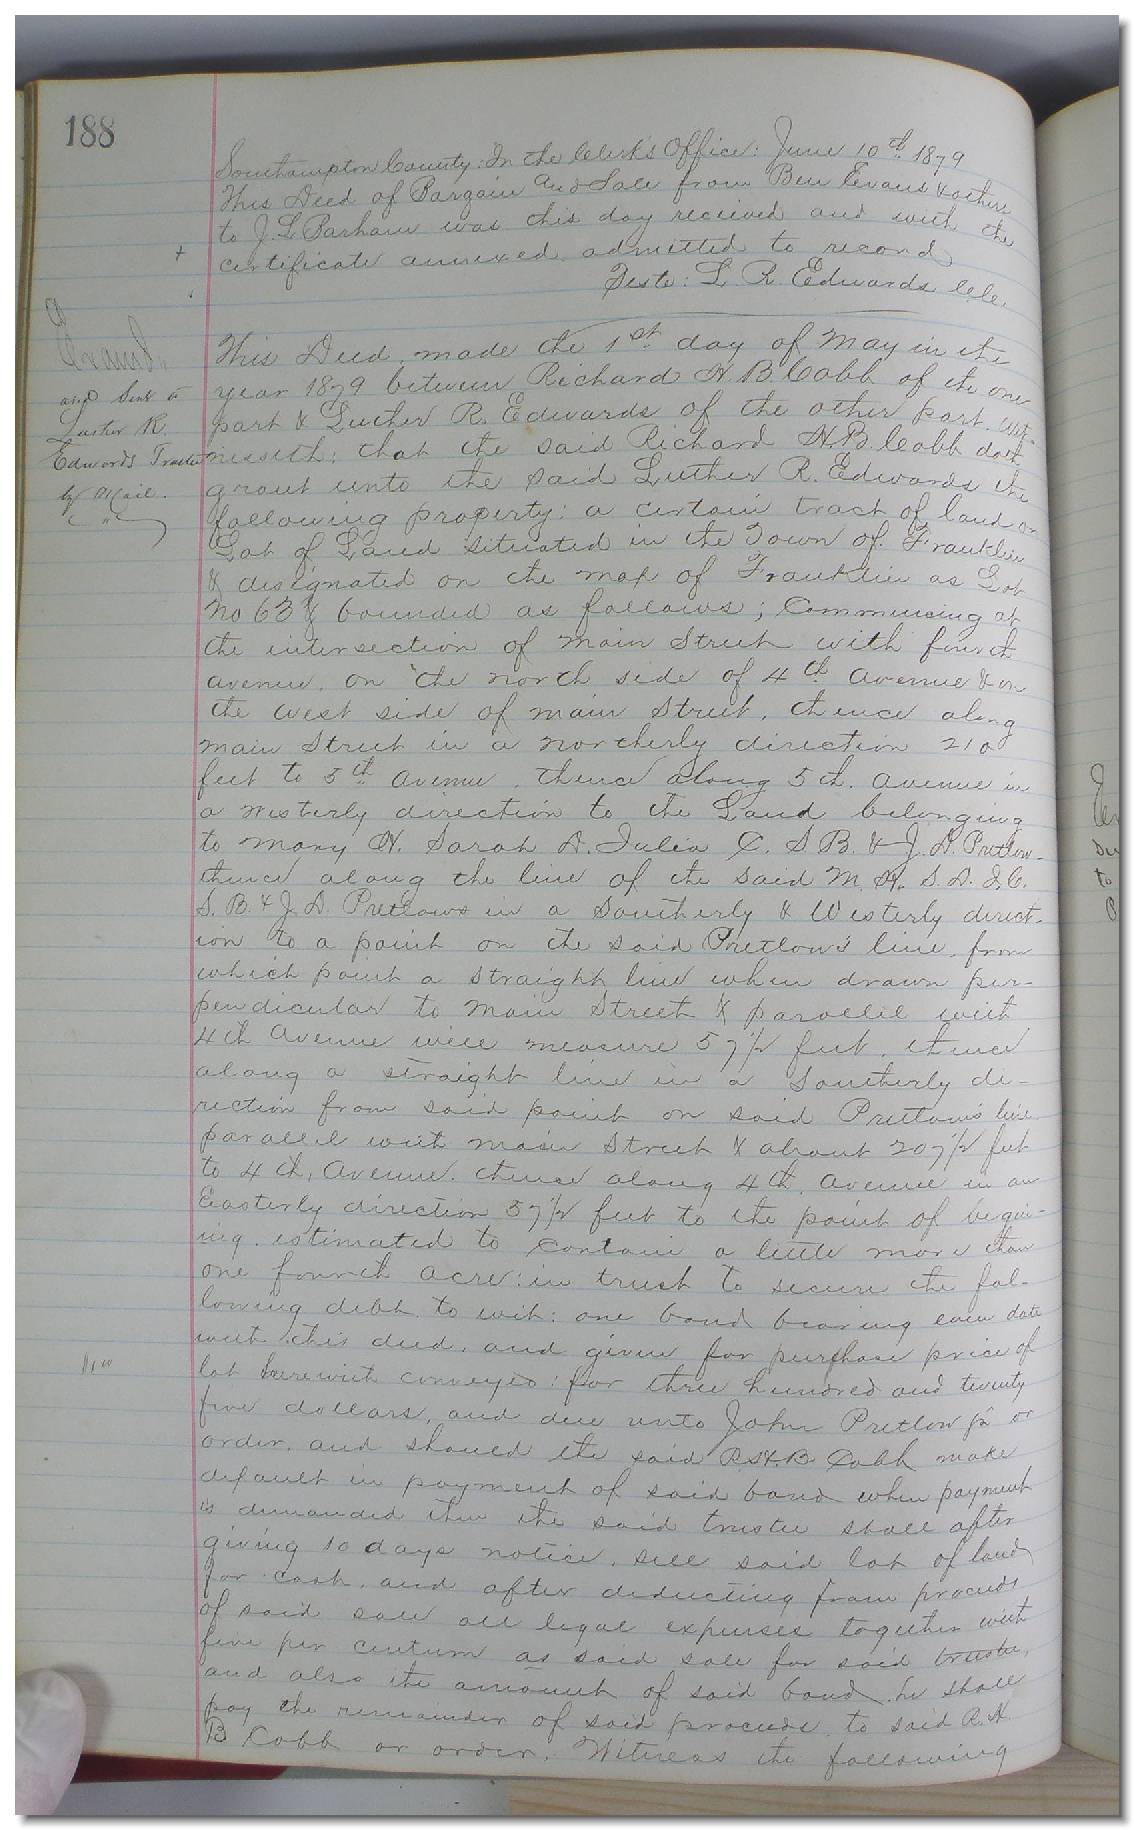 188
Southampton County: In the Clerk's Office: June 10th 1879
This Deed of Bargain and Sale from Ben Evans & others
to J. L. Parham was this day received and with the
certificate annexed admitted to record
Teste: L. R. Edwards Clk.
Examd.
and Sent to
Luther R.
Edwards Trustee
by Mail.
This Deed, made the 1st day of May in the
year 1879 between Richard H. B. Cobb of the one
part & Luther R. Edwards of the other part. Wit-
nesseth: that the said Richard H. B. Cobb doth
grant unto the said Luther R. Edwards the
following property: a certain tract of land or
Lot of Land situated in the Town of Franklin
& designated on the map of Franklin as Lot
No 63 & bounded as follows; Commencing at
the intersection of Main Street with fourth
avenue, on the north side of 4th avenue & on
the west side of main Street, thence along
main Street in a northerly direction 210
feet to 5th avenue, thence along 5th. avenue in
a westerly direction to the Land belonging
to Mary H. Sarah A. Julia C. S. B. & J. D. Pretlow
thence along the line of the said M. H. S. A. J. C.
S. B. & J. D. Pretlows in a Southerly & Westerly direct-
ion to a point on the said Pretlow's line, from
which point a straight line when drawn per-
pendicular to Main Street & parallel with
4th Avenue will measure 57½ feet, thence
along a straight line in a Southerly di-
rection from said point on said Pretlow's line
parallel with main Street & about 207½ feet
to 4th, Avenue. thence along 4th, avenue in an
Easterly direction 57½ feet to the point of begin-
ing. estimated to contain a little more than
one fourth acre: in trust to secure the fol-
lowing debt to wit: one bond bearing even date
with this deed, and given for purchase price of
lot herewith conveyed: for three hundred and twenty
five dollars, and due unto John Pretlow jr or
order. and should the said R. H. B. Cobb make
default in payment of said bond when payment
is demanded then the said trustee shall after
giving 10 days notice, sell said lot of land
for cash, and after deducting from proceeds
of said sale all legal expenses together with
five per centum as said sale for said trustee,
and also the amount of said bond, he shall
pay the remainder of said proceeds, to said R. H.
B Cobb or order. Witness the following